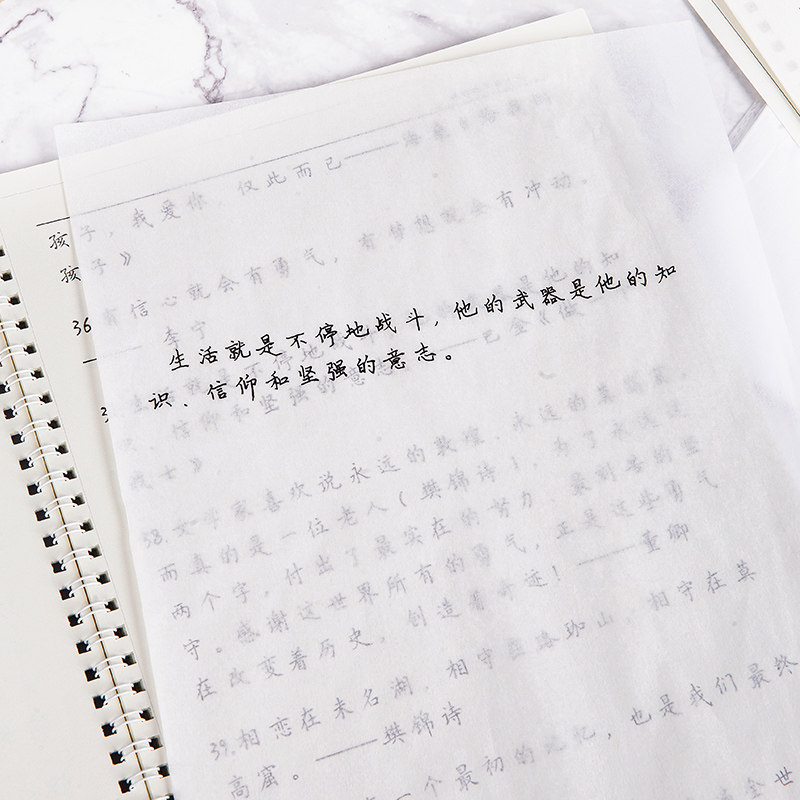 孩子，我爱你，仅此而已
孩子》
36 有信心就会有勇气，有梦想就会有冲动。
——李宁
生活就是不停地战斗，他的武器是他的知
识、信仰和坚强的意志。
战士》
38. 大家喜欢说永远的敦煌、永远的莫高窟
而真的是一位老人（樊锦诗），为了永远这
两个字，付出了最实在的努力
守。感谢这世界所有的勇气，正是这些勇气
在改变着历史，创造着奇迹！——董卿
39. 相恋在未名湖，相守在珞珈山，相守在莫
高窟。——樊锦诗
一个最初的记忆，也是我们最终